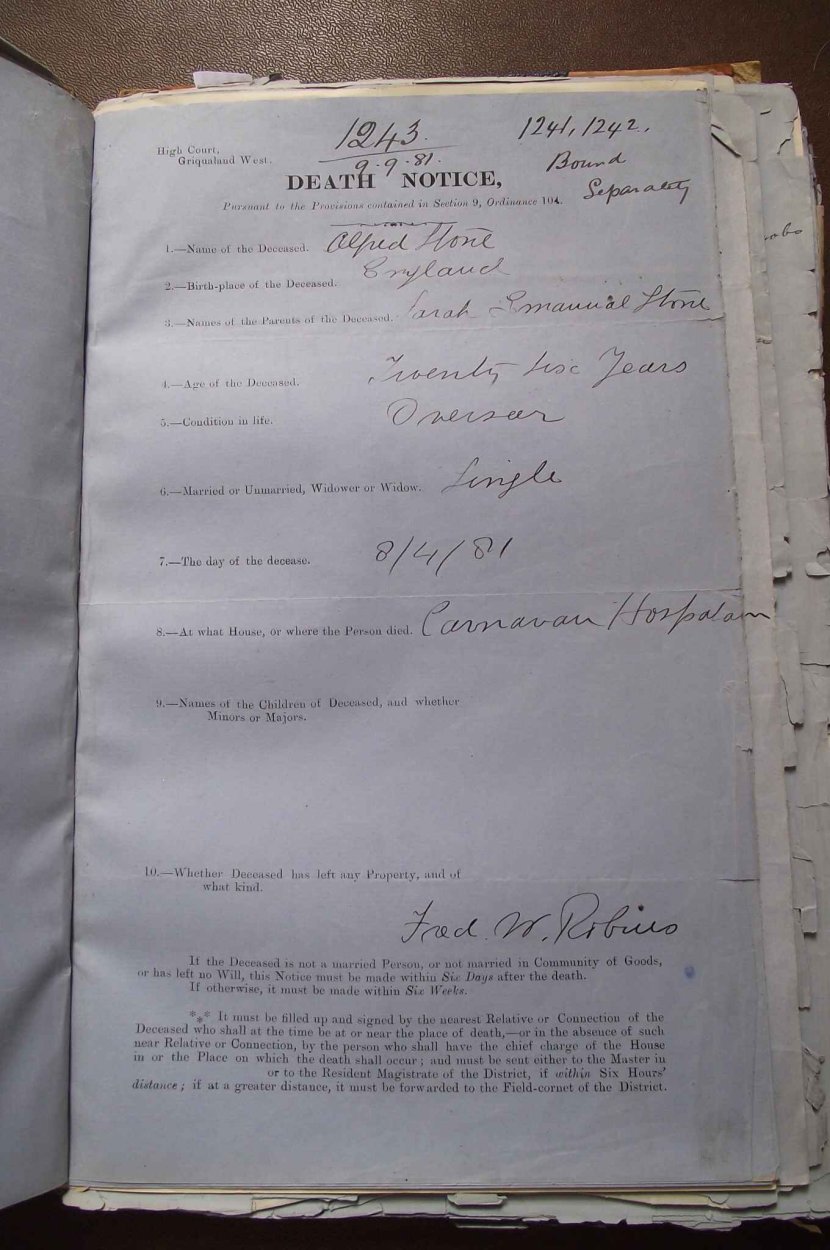 High Court,
Griqualand West.
1243.
9.9.81.
1241, 1242.,
Bound
Separately
DEATH NOTICE,
Pursuant to the Provisions contained in Section 9, Ordinance 104.
1.—Name of the Deceased. Alfred Stone
2.—Birth-place of the Deceased. England
3.—Names of the Parents of the Deceased. Sarah Emanual Stone
4.—Age of the Deceased. Twenty six Years
5.—Condition in life. Overseer
6.—Married or Unmarried, Widower or Widow. Single
7.—The day of the decease. 8/4/81
8.—At what House, or where the Person died. Carnavan
9.—Names of the Children of Deceased, and whether
Minors or Majors.
10.—Whether Deceased has left any Property, and of
what kind.
Fred. W. Robins
If the Deceased is not a married Person, or not married in Community of Goods,
or has left no Will, this Notice must be made within Six Days after the death.
If otherwise, it must be made within Six Weeks.
*** It must be filled up and signed by the nearest Relative or Connection of the
Deceased who shall at the time be at or near the place of death,—or in the absence of such
near Relative or Connection, by the person who shall have the chief charge of the House
in or the Place on which the death shall occur; and must be sent either to the Master in
or to the Resident Magistrate of the District, if within Six Hours'
distance; if at a greater distance, it must be forwarded to the Field-cornet of the District.